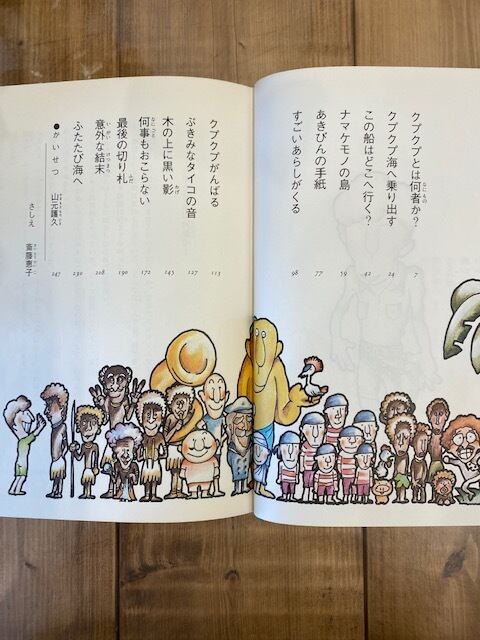 クプクプとは何者か？ 7
クプクプ海へ乗り出す 24
この船はどこへ行く？ 42
ナマケモノの島 59
あきびんの手紙 77
すごいあらしがくる 98
クプクプがんばる 113
ぶきみなタイコの音 127
木の上に黒い影 145
何事もおこらない 172
最後の切り札 190
意外な結末 208
ふたたび海へ 230
●かいせつ 山元護久 247
さしえ 斎藤恵子